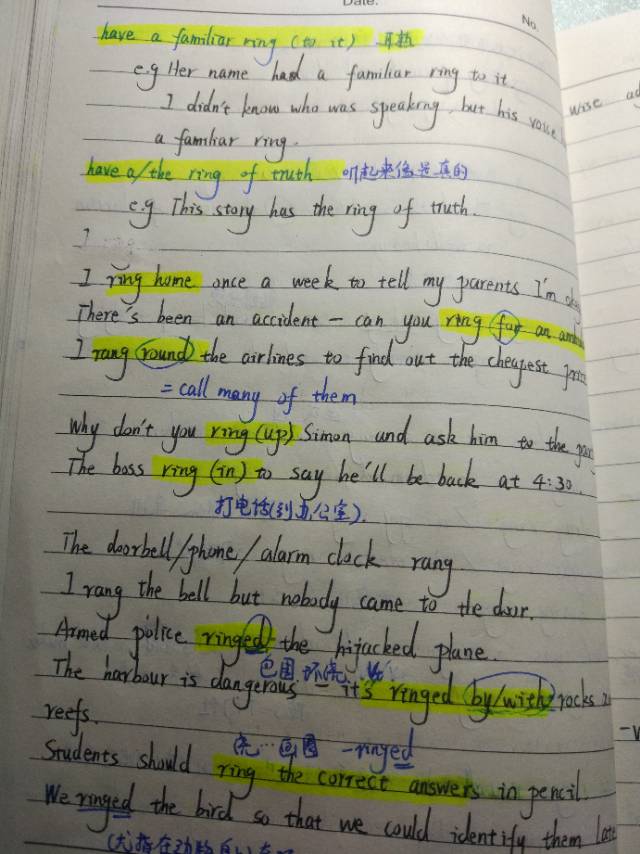 Date:
No.
have a familiar ring (to it) 耳熟
e.g Her name had a familiar ring to it.
I didn't know who was speaking, but his voice
a familiar ring.
have a/the ring of truth 听起来像是真的
e.g This story has the ring of truth.
I
I ring home once a week to tell my parents I'm
There's been an accident – can you ring for an
I rang round the airlines to find out the cheapest
= call many of them
Why don't you ring (up) Simon and ask him to the
The boss ring (in) to say he'll be back at 4:30.
打电话(到办公室).
The doorbell/phone/alarm clock rang
I rang the bell but nobody came to the door.
Armed police ringed the hijacked plane.
包围.环绕.
The harbour is dangerous – it's ringed by/with rocks
reefs.
画圈 – ringed
Students should ring the correct answers in pencil.
We ringed the bird so that we could identify them
wise